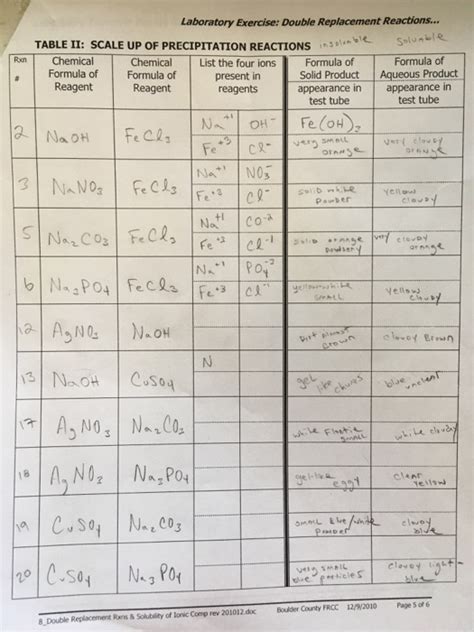 Laboratory Exercise: Double Replacement Reactions...
TABLE II: SCALE UP OF PRECIPITATION REACTIONS insoluble soluable
Rxn # Chemical Formula of Reagent Chemical Formula of Reagent List the four ions present in reagents Formula of Solid Product appearance in test tube Formula of Aqueous Product appearance in test tube
2 NaOH FeCl3 Na+1 OH- Fe(OH)3
Fe+3 Cl- very small orange very cloudy orange
3 NaNO3 FeCl3 Na+1 NO3-
Fe+3 Cl- solid white powder yellow cloudy
5 Na2CO3 FeCl3 Na+1 CO-2
Fe+3 Cl-1 solid orange powdery very cloudy orange
6 Na3PO4 FeCl3 Na+1 PO4-2
Fe+3 Cl- yellow white small yellow cloudy
12 AgNO3 NaOH
Dirt almost brown cloudy brown
13 NaOH CuSO4 N
gel like chunks blue
17 AgNO3 Na2CO3
white small white cloudy
18 AgNO3 Na3PO4
gel-like eggy clear yellow
19 CuSO4 Na2CO3
small blue/white powder cloudy blue
20 CuSO4 Na3PO4
very small blue particles cloudy light blue
8_Double Replacement Rxns & Solubility of Ionic Comp rev 201012.doc Boulder County FRCC 12/9/2010 Page 5 of 6